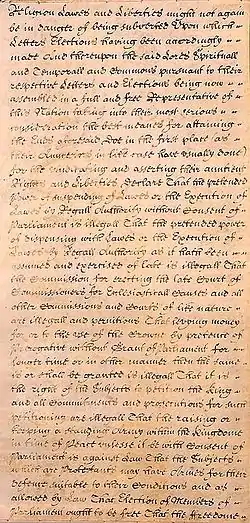 Religion Lawes and Liberties might not again
be in danger of being subverted Vpon which
Letters Elections having been accordingly
made And thereupon the said Lords Spirituall
and Temporall and Commons pursuant to their
respective Letters and Elections being now
assembled in a full and free Representative of
this Nation taking into their most serious
consideration the best meanes for attaining
the Ends aforesaid Doe in the first place as
their Auncestors in like case have usually done
for the vindicating and asserting their auntient
Rights and Liberties, Declare That the pretended
power of suspending of Lawes or the Execution of
Lawes by Regall Authority without Consent of
Parliament is illegall That the pretended power
of dispensing with Lawes or the Execution of
Lawes by Regall Authority as it hath been
assumed and exercised of late is illegall That
the Commission for erecting the late Court of
Commissioners for Eclesiasticall Causes and all
other Commissions and Courts of like nature
are illegall and pernitious That levying money
for or to the use of the Crowne by pretence of
Prerogative without Grant of Parliament for
longer time or in other manner then the same
is or shall be granted is illegall That it is
the right of the Subjects to petition the King
and all Committments and prosecutions for such
petitioning are illegall That the raising or
keeping a standing Army within the Kingdome
in time of Peace unlesse it be with Consent of
Parliament is against Law That the Subjects
which are Protestants may have Armes for their
Defence suitable to their Conditions and as
allowed by Law That Election of Members of
Parliament ought to be free That the freedome